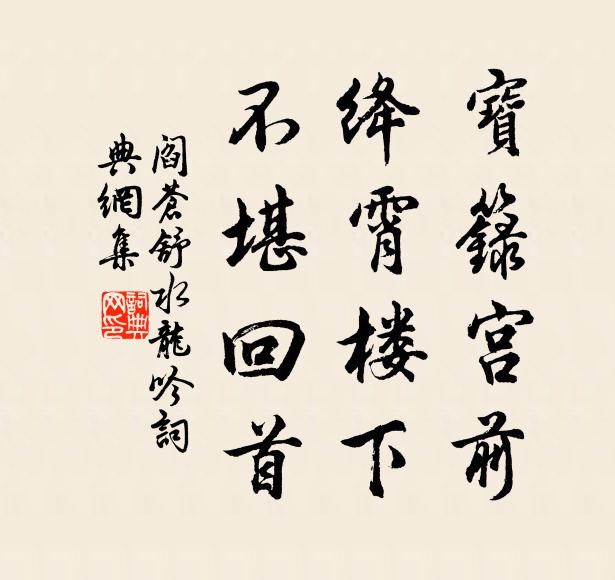 寶籙宫前
绛霄楼下
不堪回首
阎蒼舒水龍吟詞
典網集
詞典网印